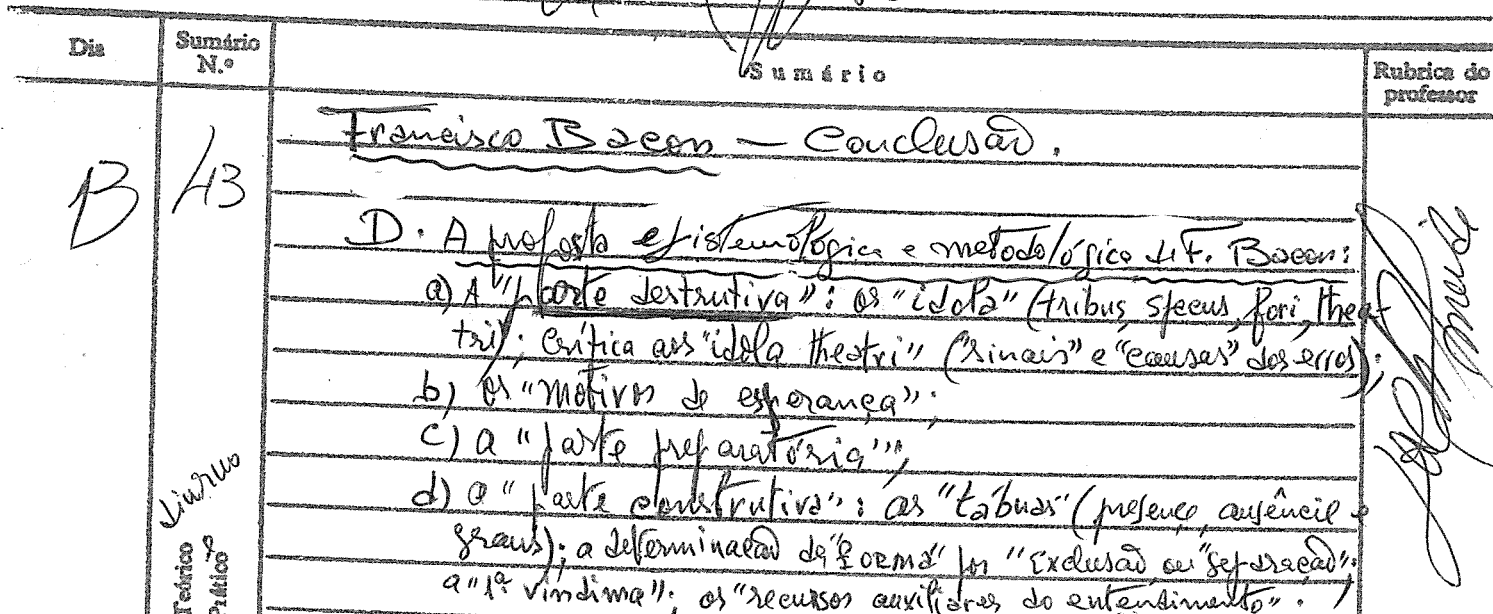 Dia
Sumário N.º
Sumário
Rubrica do professor
B
43
Francisco Bacon — Conclusão.
D. A proposta epistemológica e metodológica de F. Bacon:
a) A "parte destrutiva": os "idola" (tribus, specus, fori, thea-
tri); crítica aos "idola theatri" ("sinais" e "causas" dos erros);
b) os "motivos de esperança";
c) a "parte preparatória";
d) a "parte construtiva": as "tábuas" (presença, ausência e
graus); a determinação da "forma" por "exclusão ou "separação";
a "1ª vindima"; os "recursos auxiliares do entendimento".
Diurno
Teórico e
Prático